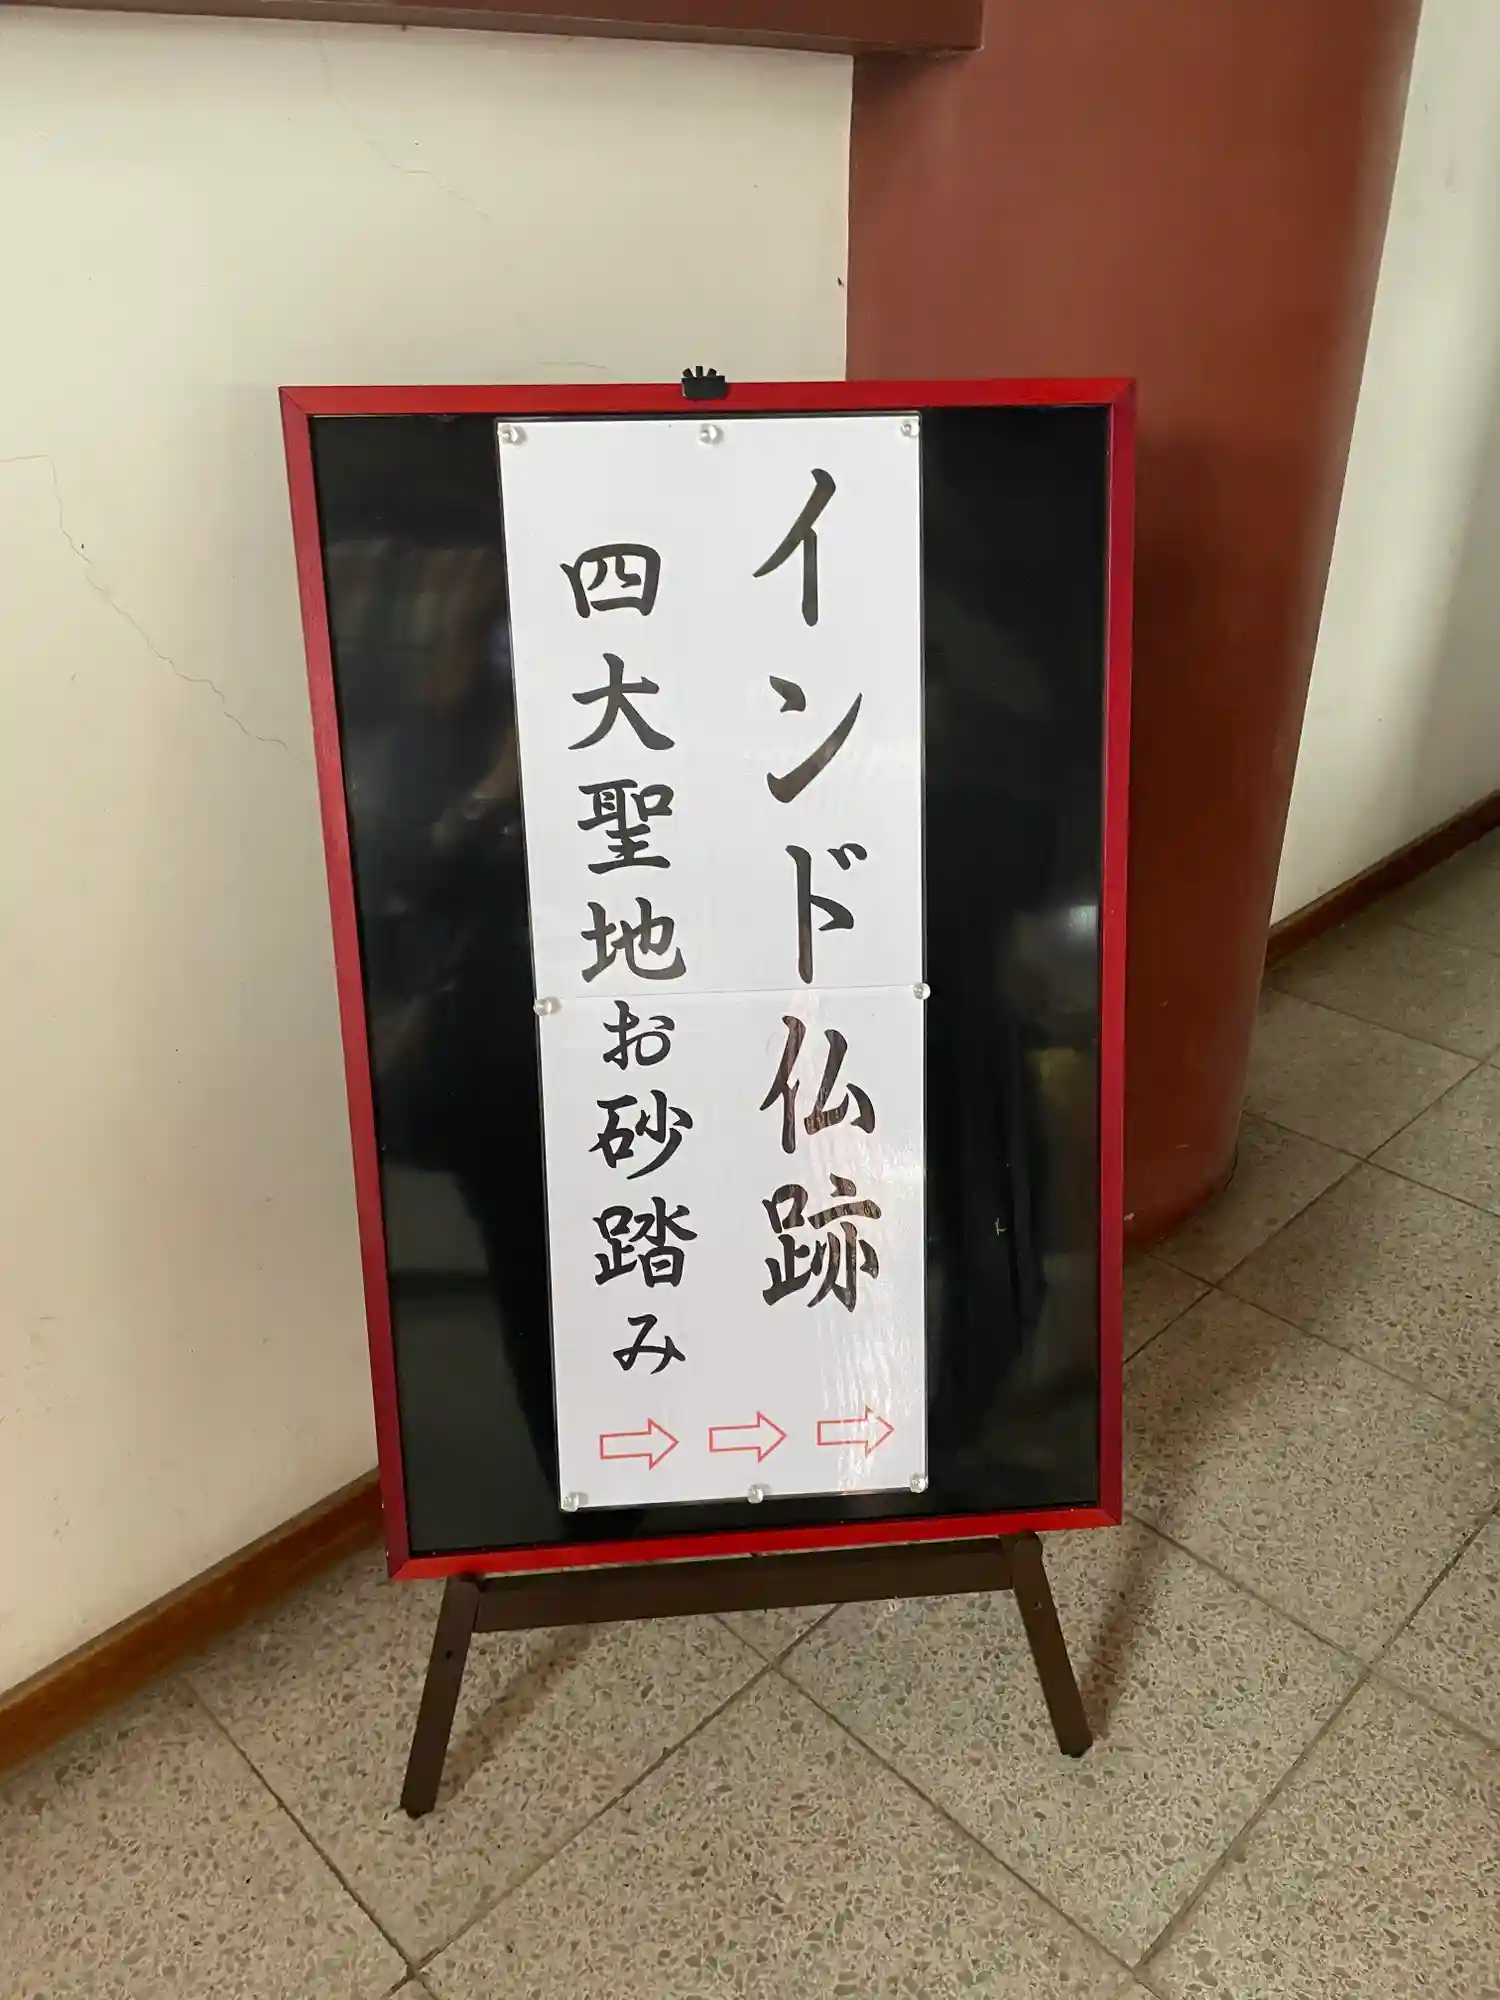 インド仏跡
四大聖地お砂踏み